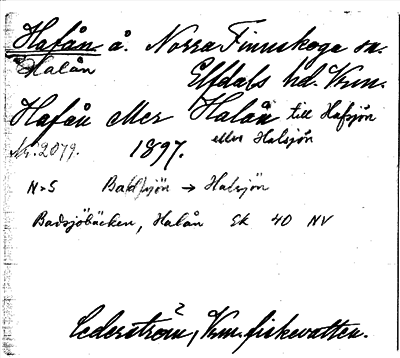 Hafån å. Norra Finnskoga sn.
Halån Elfdals hd. Vrm.
Hafån eller Halån till Hafsjön
eller Halsjön
Nr. 2079. 1897.
N→S Badsjön → Halsjön
Badsjöbäcken, Halån Ek 40 NV
?
Cederström, Vrm. fiskevatten.